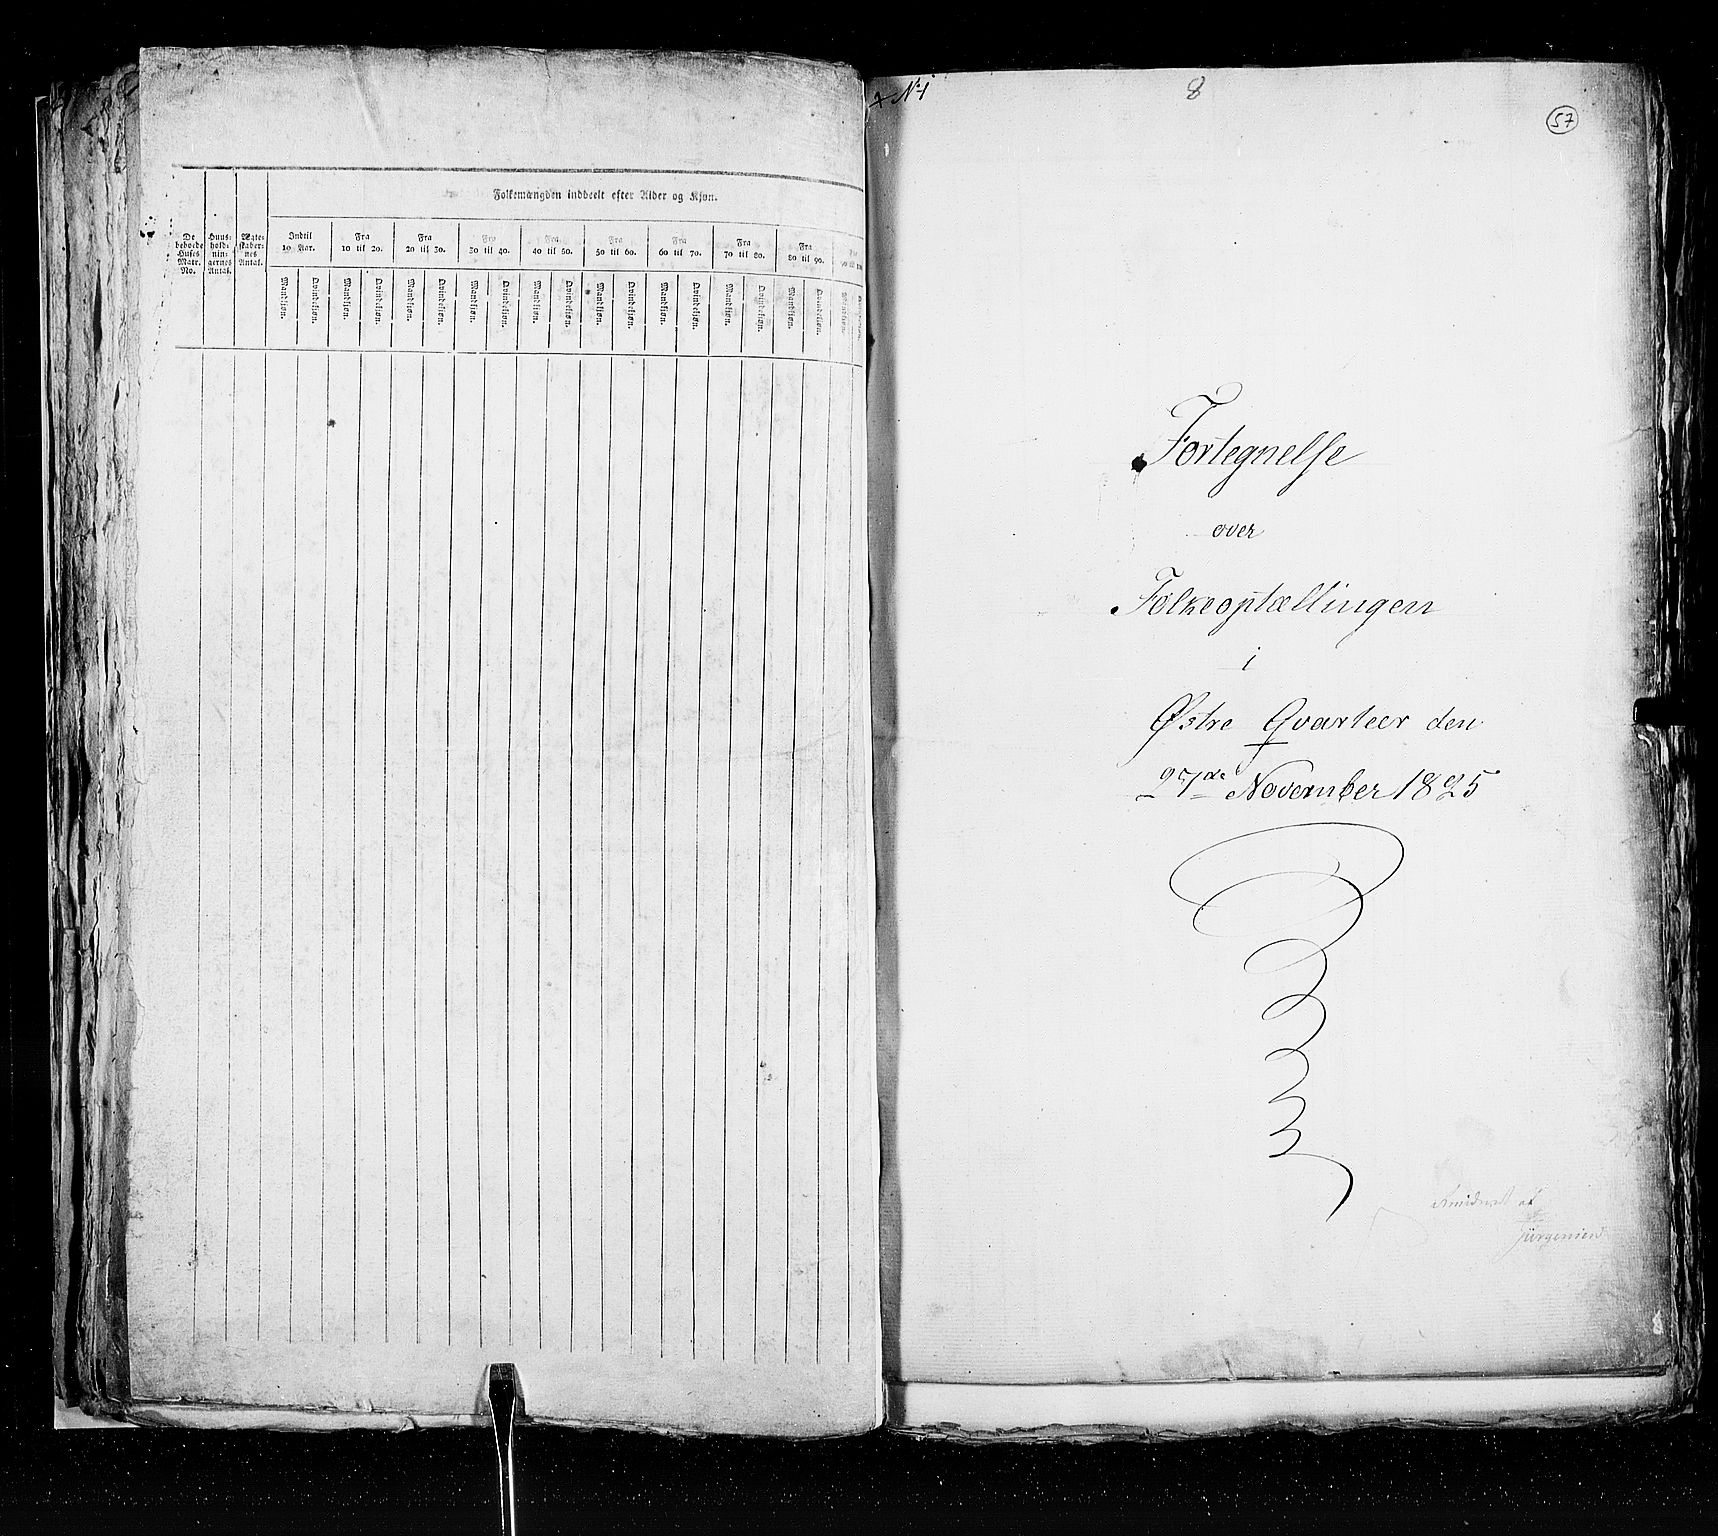 Folkemængden inddeelt efter Alder og Kjøn.
De beboede Huses Matr. No.
Huus-hold-nin-gernes Antal.
Ægte-skaber-nes Antal.
Indtil 10 Aar.
Fra 10 til 20.
Fra 20 til 30.
Fra 30 til 40.
Fra 40 til 50.
Fra 50 til 60.
Fra 60 til 70.
Fra 70 til 80.
Fra 80 til 90.
Mandkjøn. Qvindekjøn. Mandkjøn. Qvindekjøn. Mandkjøn. Qvindekjøn. Mandkjøn. Qvindekjøn. Mandkjøn. Qvindekjøn. Mandkjøn. Qvindekjøn. Mandkjøn. Qvindekjøn. Mandkjøn. Qvindekjøn. Mandkjøn. Qvindekjøn. Mandkjøn.
No 1
8
57
Fortegnelse
over
Folkeoptællingen
i
Østre Qvarteer den
27de November 1825
af
Jürgensen
8